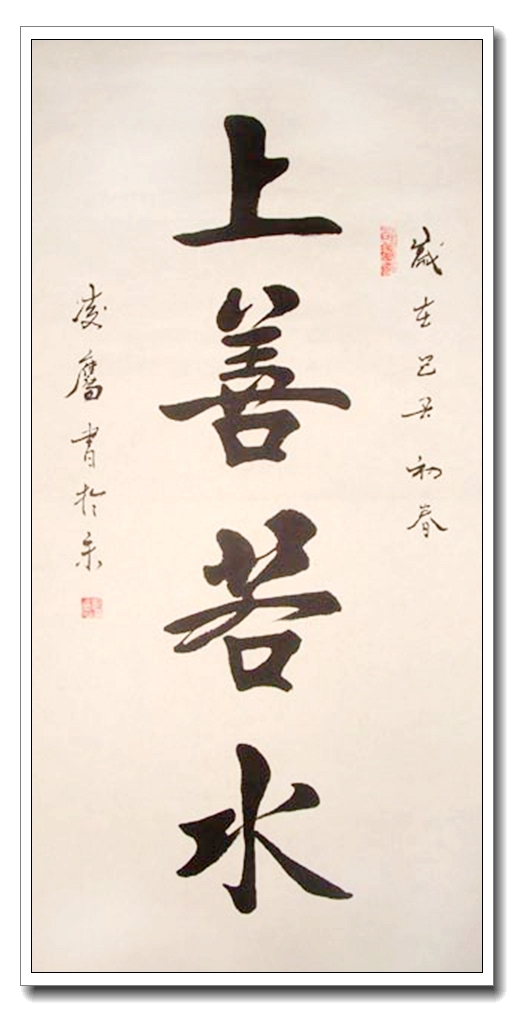 歲在己丑初春
上善若水
凌鷹書於京